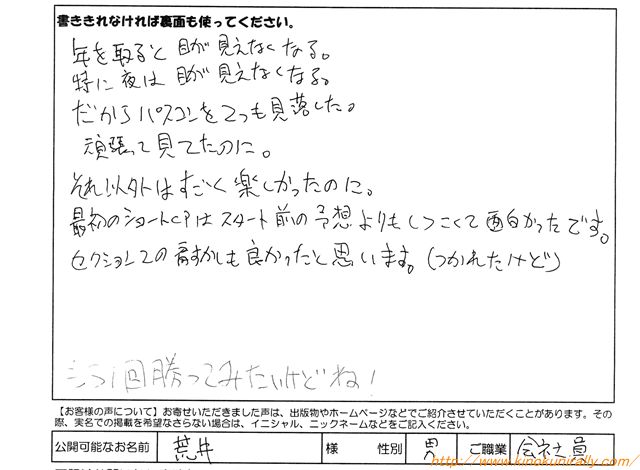 書ききれなければ裏面も使ってください。
年を取ると目が見えなくなる。
特に夜は目が見えなくなる。
だからパスコンを2つも見落した。
頑張って見てたのに。
それ以外はすごく楽しかったのに。
最初のショートCPはスタート前の予想よりもしつこくて面白かったです。
セクション2の肩すかしも良かったと思います。(つかれたけど)
もう1回勝ってみたいけどね!
【お客様の声について】お寄せいただきました声は、出版物やホームページなどでご紹介させていただくことがあります。その
際、実名での掲載を希望なさらない場合は、イニシャル、ニックネームなどをご記入ください。
公開可能なお名前 荒井 様 性別 男 ご職業 会社員
http://www.kinokunirally.com